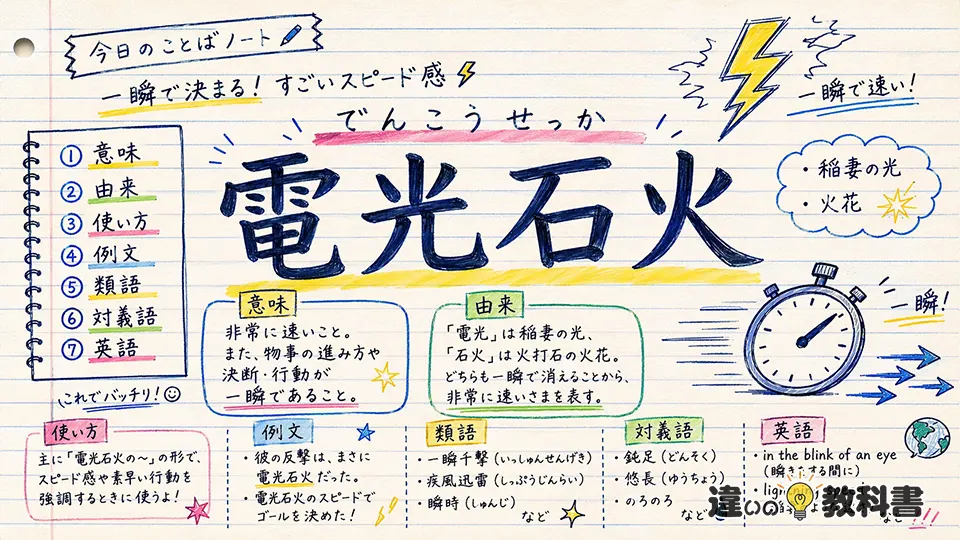 今日のことばノート
一瞬で決まる！すごいスピード感
でんこうせっか
電光石火
一瞬で速い！
・稲妻の光
・火花
一瞬！
① 意味
② 由来
③ 使い方
④ 例文
⑤ 類語
⑥ 対義語
⑦ 英語
これでバッチリ！
意味
非常に速いこと。
また、物事の進み方や
決断・行動が
一瞬であること。
由来
「電光」は稲妻の光、
「石火」は火打石の火花。
どちらも一瞬で消えることから、
非常に速いさまを表す。
使い方
主に「電光石火の～」の形で、
スピード感や素早い行動を
強調するときに使うよ！
例文
・彼の反撃は、まさに
電光石火だった。
・電光石火のスピードで
ゴールを決めた！
類語
・一瞬千撃（いっしゅんせんげき）
・疾風迅雷（しっぷうじんらい）
・瞬時（しゅんじ）
など
対義語
・鈍足（どんそく）
・悠長（ゆうちょう）
・のろのろ
など
英語
・in the blink of an eye
（瞬きする間に）
違いの教科書